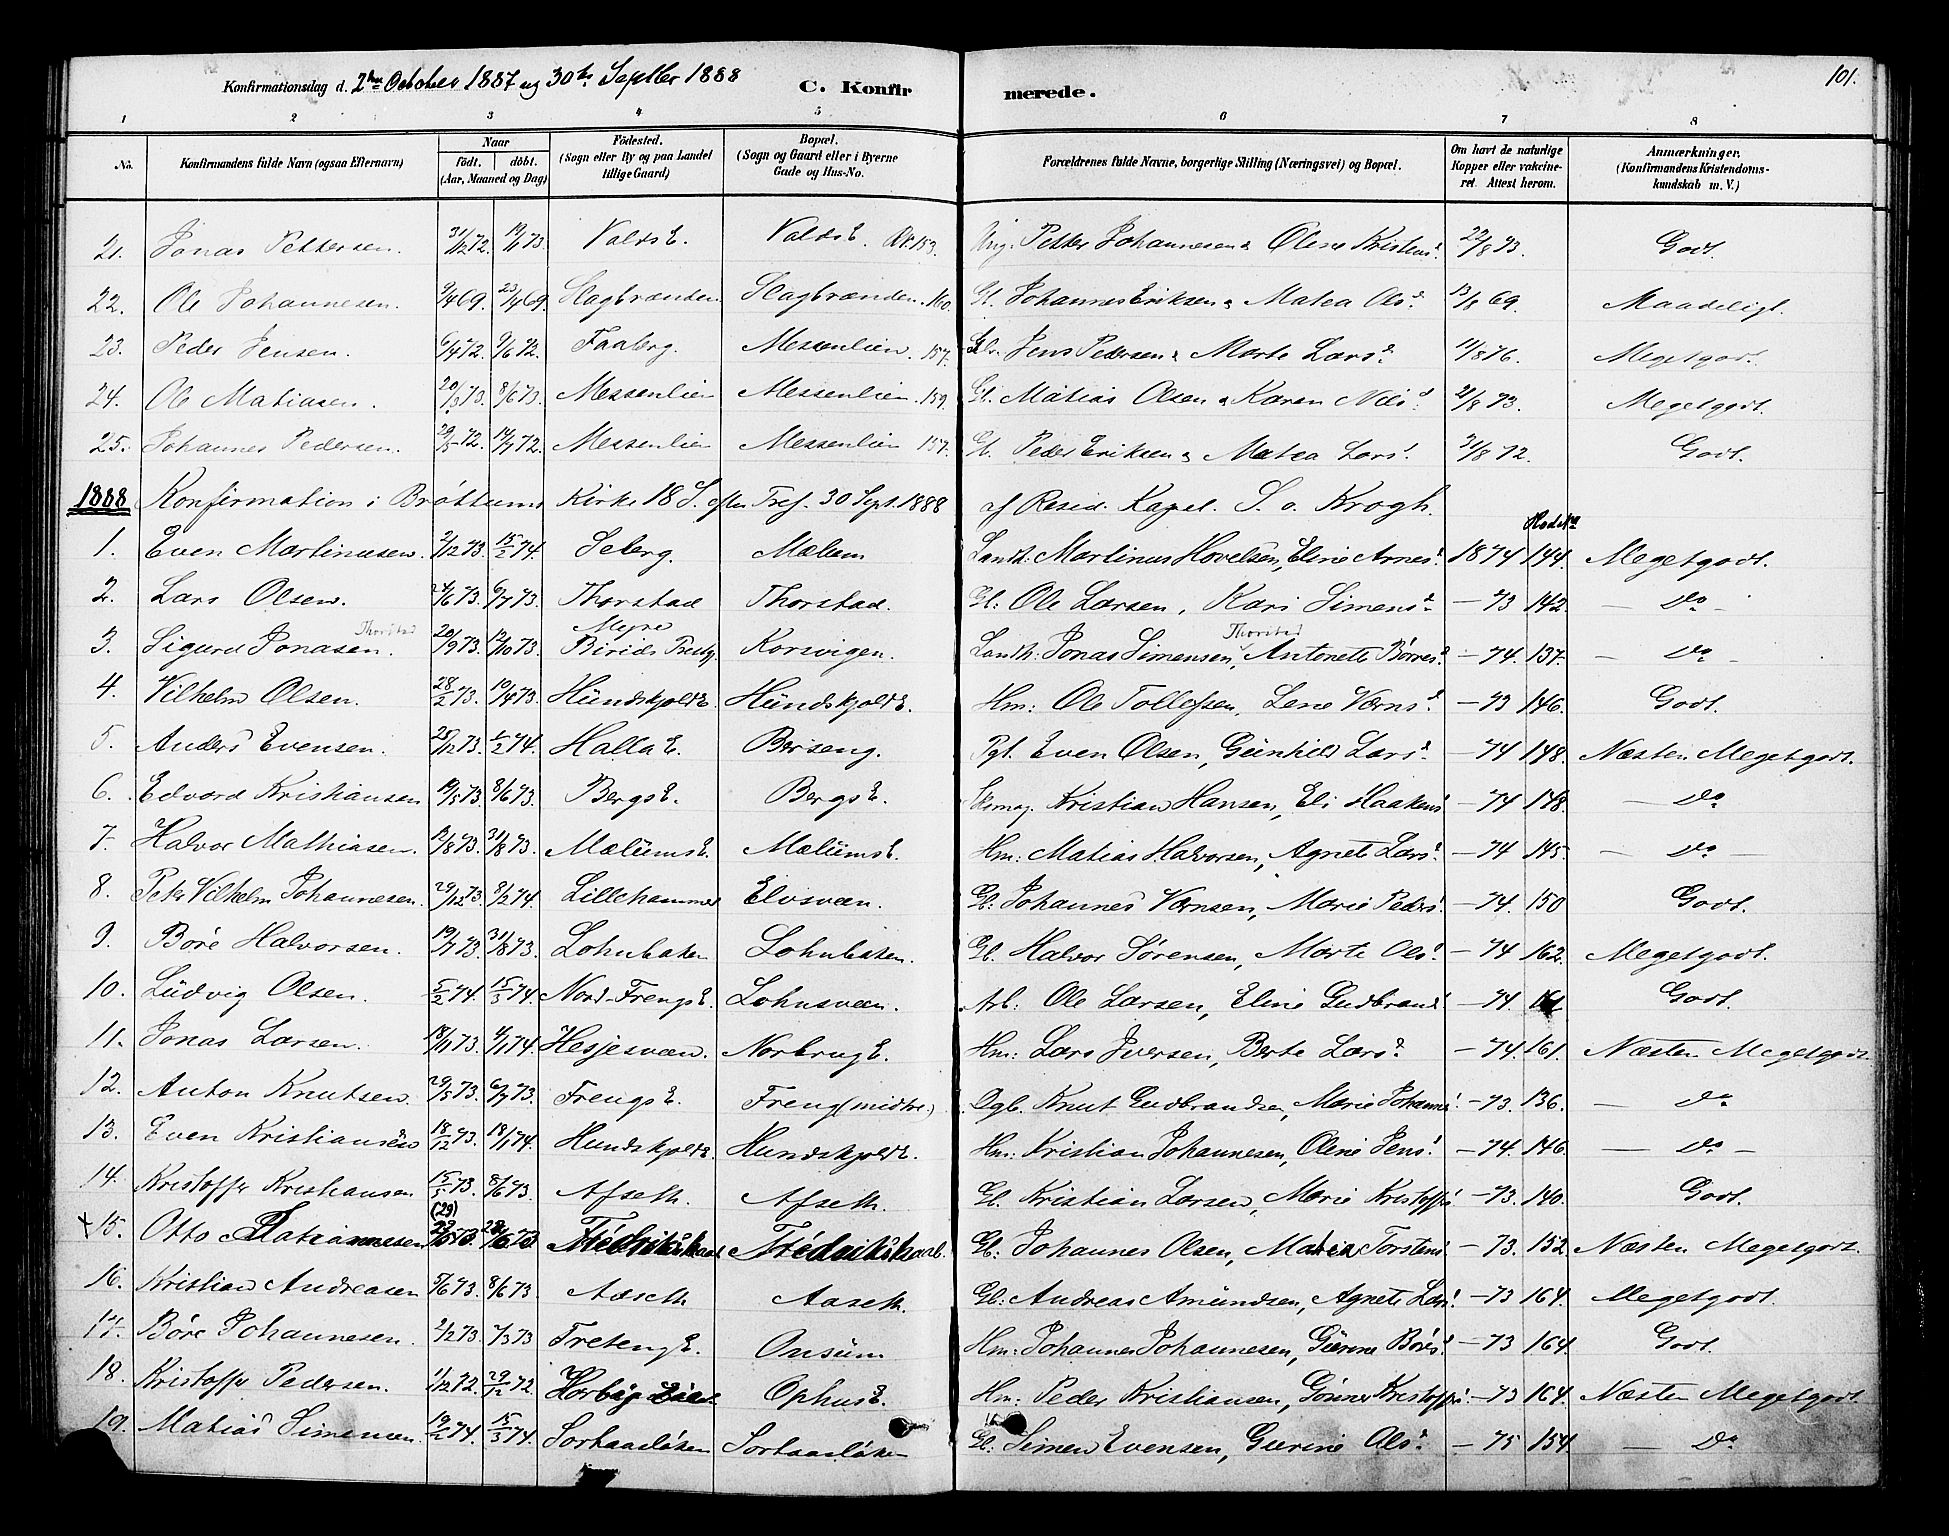 Konfirmationsdag d. 2den October 1887 og 30te Septbr 1888 C. Konfirmerede. 101.
1 2 3 4 5 6 7 8
No. Konfirmandens fulde Navn (ogsaa Efternavn) Naar født. døbt. (Aar, Maaned og Dag) Födested. (Sogn eller By og paa Landet tillige Gaard) Bopæl. (Sogn og Gaard eller i Byerne Gade og Hus-No. Forældrenes fulde Navne, borgerlige Stilling (Næringsvei) og Bopæl. Om havt de naturlige Kopper eller vakcineret. Attest herom. Anmærkninger. (Konfirmandens Kristendomskundskab m. V.)
21. Jonas Pettersen. 31/12 72. 19/1 73. Valds E. Valds E. 153. Petter Johannesen & Oline Kristensd. 22/8 73. Godt.
22. Ole Johannesen. 9/4 69. 23/4 69. Slagbrænden Slagbrænden. 160. Gl. Johannes Eriksen & Matea Olsd. 13/8 69. Maadeligt.
23. Peder Jensen. 6/4 72. 9/6 72. Faaberg. Messenlien. 157. Jens Pedersen & Marte Larsd. 11/8 76. Megetgodt.
24. Ole Matiasen. 20/3 73. 8/6 73. Messenlien Messenlien. 159. Gl. Matias Olsen & Karen Nilsd. 21/8 73. Megetgodt.
25. Johannes Pedersen. 29/5 72. 14/7 72. Messenlien Messenlien 157. Gl. Peder Eriksen & Matea Larsd. 21/8 72. Godt.
1888 Konfirmation i Brøttums Kirke 18 S. efter Tref. 30 Sept. 1888 af Resid. Kapel. S. o. Krogh.
1. Even Martinusen 2/12 73. 15/2 74. Seberg. Mælum Landh: Martinus Hovelsen, Eline Arnesd. 1874 144. Megetgodt.
2. Lars Olsen. 24/6 73. 6/7 73. Thorstad Thorstad. Gl: Ole Larsen, Kari Simensd. – 73 142. – Do –
Thorstad Thorstad
3. Sigurd Jonasen. 20/9 73. 12/10 73. Birids Præstg. Korsvigen. Landh: Jonas Simensen, Antonette Børresd. – 74. 137. – Do –
4. Vilhelm Olsen. 28/2 73. 19/4 73. Hundskjold E. Hundskjold E. Hm: Ole Tollefsen, Lene Værnsd. – 73 146. Godt.
5. Anders Evensen. 28/12 73. 1/2 74. Halla E. Berseng. Pgl. Even Olsen, Gunhild Larsd. – 74 148. Næsten Megetgodt.
6. Edvard Kristiansen 19/5 73. 8/6 73. Bergs E. Bergs E. Kristian Hansen, Eli Haakens – 74 148. – Do
7. Halvor Mathiasen. 12/8 73. 31/8 73. Mælums E. Mælums E. Hm: Matias Halvorsen, Agnete Larsd. – 74 145. – Do –
8. Peter Vilhelm Johannesen. 29/12 73. 8/2 74. Lillehammer Elvsveen. Gl: Johannes Værnsen, Marie Peders. – 74. 150 Godt.
9. Børe Halvorsen. 19/7 73. 31/8 73. Lohnbaken Lohnbaken. Gl. Halvor Sørensen, Marte Olsd. – 74 162. Megetgodt.
10. Ludvig Olsen. 5/2 74. 15/3 74. Nord-Frengs E. Lohnsveen. Arb: Ole Larsen, Eline Gudbrand – 74. 161 Godt.
11. Jonas Larsen. 18/11 73. 4/1 74. Hesjesveen. Norbrug E. Hm: Lars Iversen, Berte Larsd. – 74. 161. Næsten Megetgodt
12. Anton Knutsen. 29/5 73. 6/7 73. Frengs E. Freng (midtre.) Knut Gudbrandsen, Marie Johannes. – 73. 136. – Do
13. Even Kristiansen 18/12 73. 18/1 74. Hundskjold E. Hundskjold E. Hm: Kristian Johannesen, Oline Jensd. – 74. 146. – Do –
14. Kristoffer Kristiansen 15/5 73. 8/6 73. Afseth. Afseth. Gl. Kristian Larsen, Marie Kristoffs – 73. 140. Godt.
15. Otto Johannesen (29) Fredrikskaab. Gl: Johannes Olsen, Torstens – 73. 152. Næsten Megetgodt.
16. Kristian Andreasen 5/6 73. 8/6 73. Aaseth Aaseth. Gl: Andreas Amundsen, Agnete Lars. – 73 164. Megetgodt.
17. Børe Johannesen. 2/2 73. 2/3 73 Treteng E. Onsum Hm: Johannes Johannesen, Gurine Børesd. – 73 164. Godt.
18. Kristoffer Pedersen. 1/12 72. 29/12 72. Ophus E. Hm: Peder Kristiansen, Kristoffs – 73 164. Næsten Megetgodt.
19. Matias Simensen. 19/2 74. 15/3 74. Sorhaarløken Sorhaarløken Gl: Simen Evensen, Gurine Olsd. – 75 154 – Do